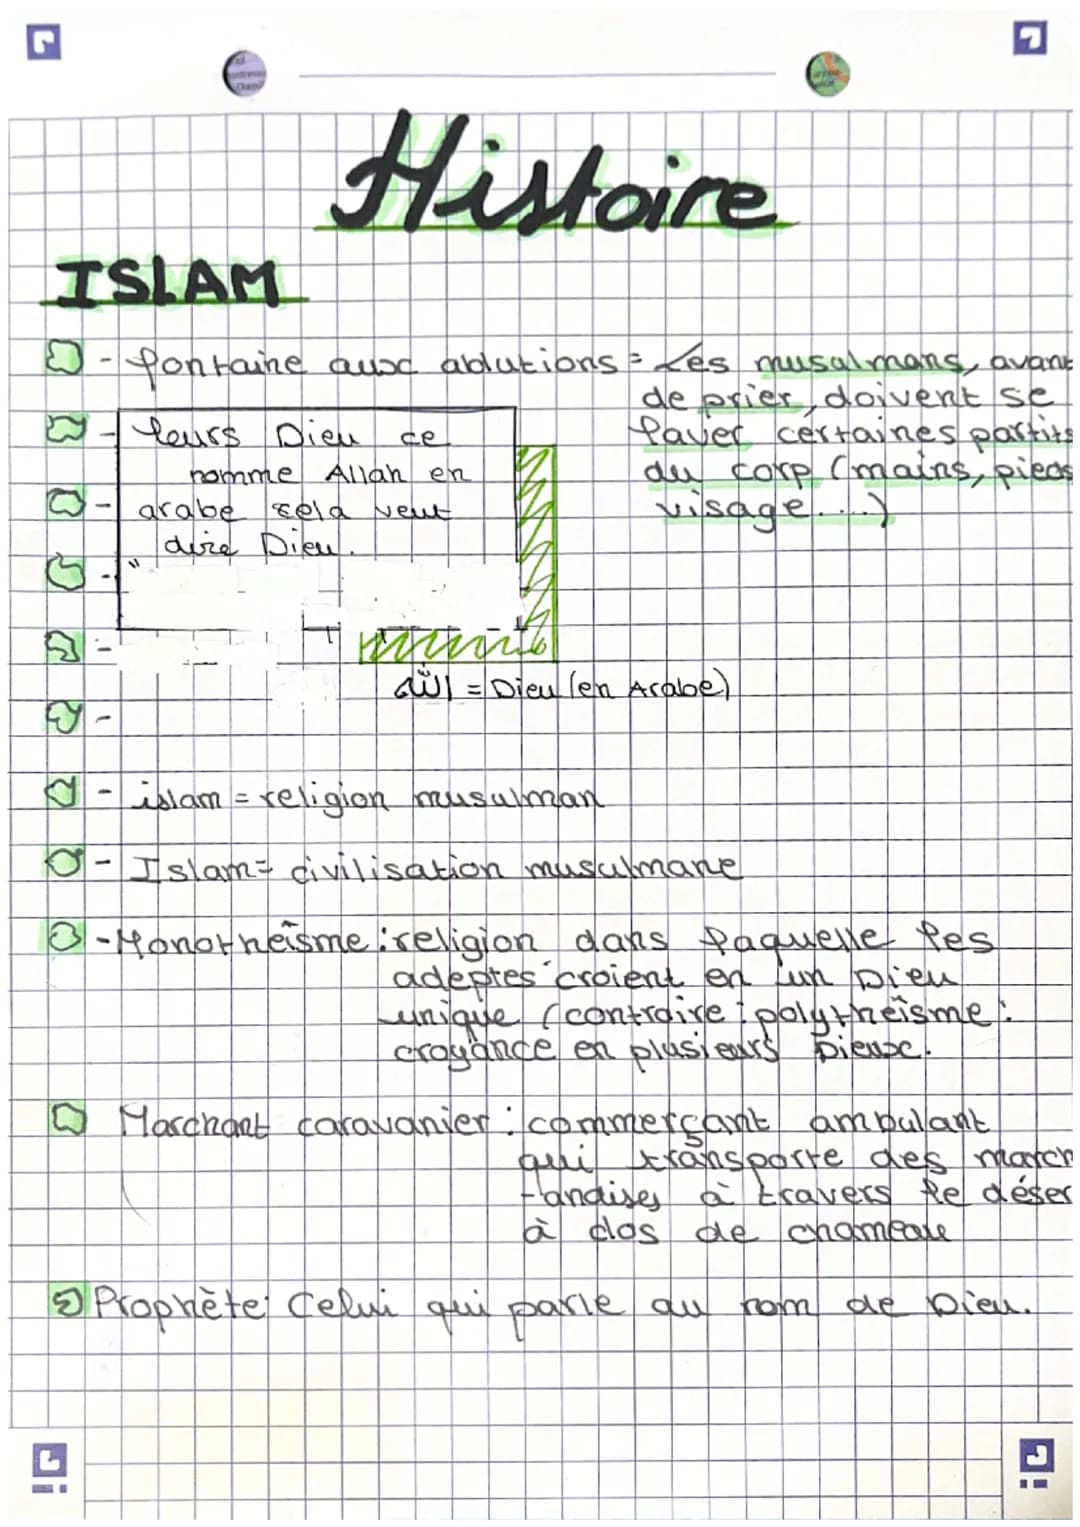 Histoire
ISLAM
- fontaine aux ablutions = Les musulmans, avant
de prier, doivent se
laver certaines partits
du corp (mains, pieds
visage....)
- leurs Dieu ce
nomme Allah en
- arabe sela veut
dire Dieu.
-
-
-
الله = Dieu (en Arabe)
- islam = religion musulman
- Islam = civilisation musulmane
- Monotheïsme : religion dans laquelle les
adeptes croient en un Dieu
unique (contraire : polytheïsme :
croyance en plusieurs Dieux.
Marchant caravanier : commerçant ambulant
qui transporte des march
-andises à travers le déser
à dos de chameau
Prophète : Celui qui parle au nom de Dieu.